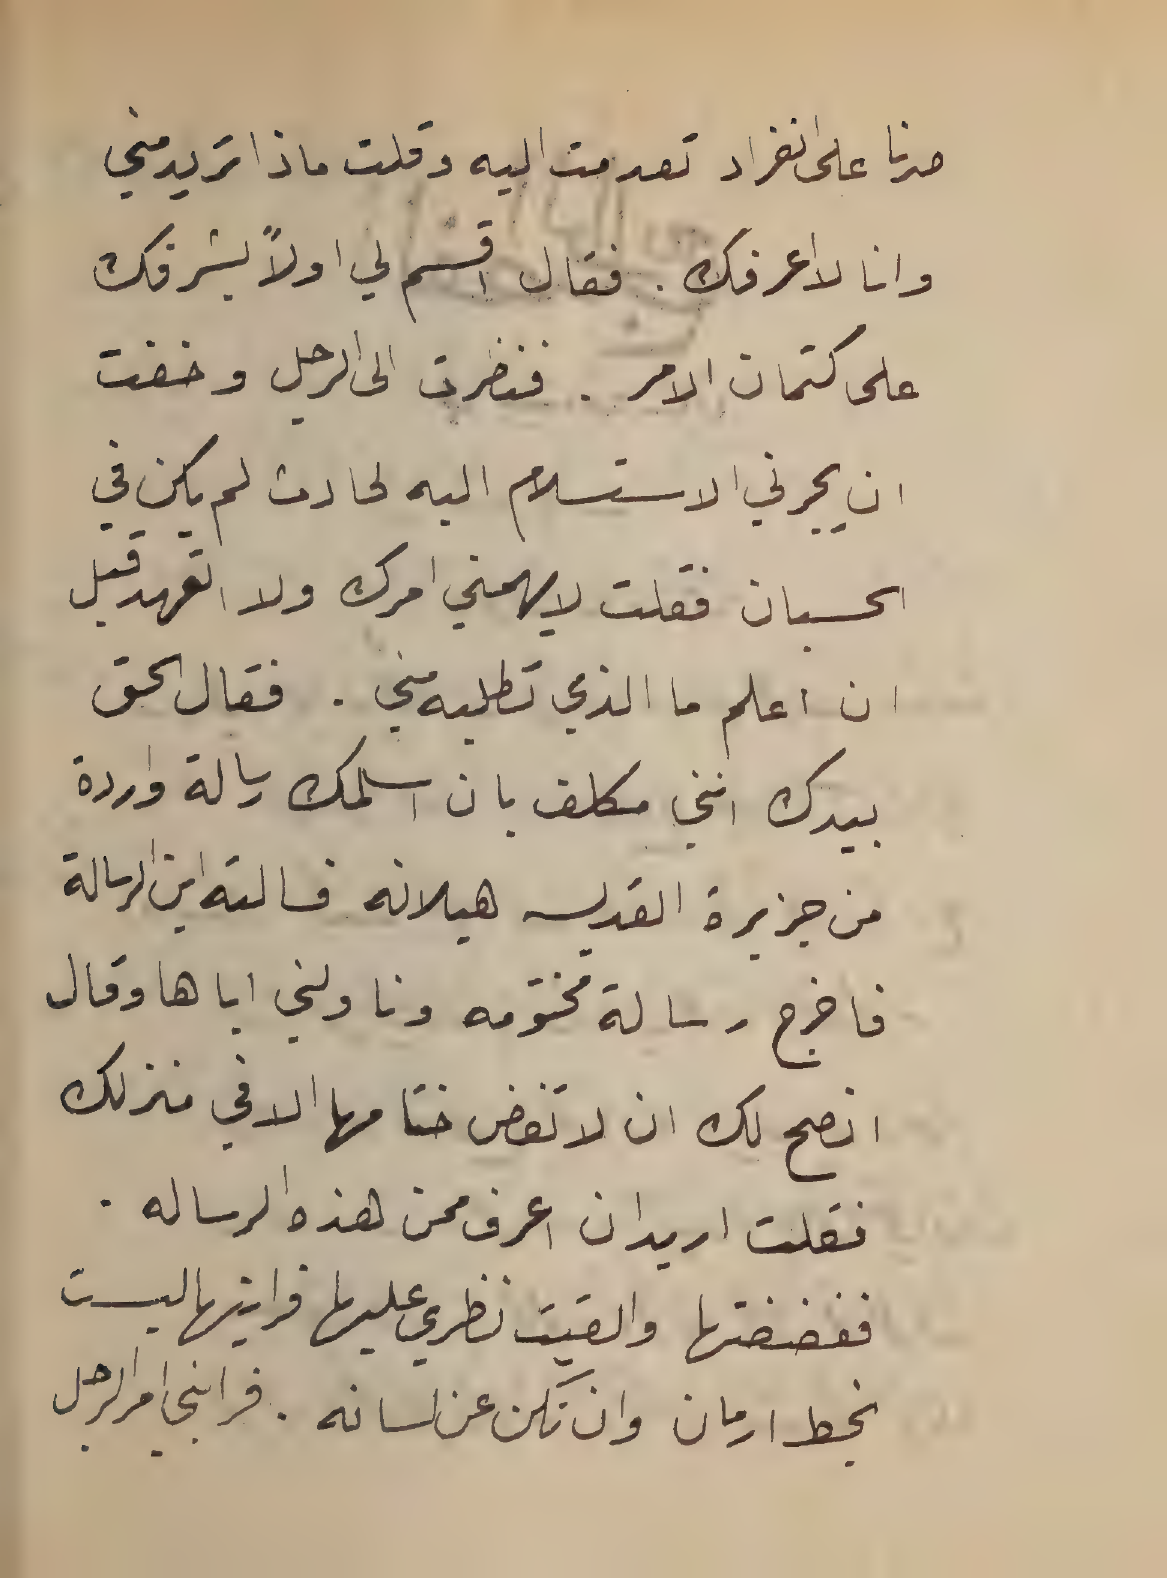 صرنا على انفراد تقدمت اليه وقلت ماذا تريد مني
وانا لا اعرفك . فقال اقسم لي اولاً بشرفك
على كتمان الامر . فنظرت الى الرجل وخفت
ان يجرني الاستسلام اليه لحادث لم يكن في
الحسبان فقلت لا يهمني امرك ولا اتعهد قبل
ان اعلم ما الذي تطلبه مني . فقال الحق
بيدك انني مكلف بان اسلمك رسالة واردة
من جزيرة القديسه هيلانه فسالته اين الرسالة
فاخرج رسالة مختومه وناولني اياها وقال
انصح لك ان لا تفض ختامها الا في منزلك
فقلت اريد ان اعرف ممن هذه الرساله .
ففضضتها والقيت نظري عليها فرايتها ليست
بخط ارمان وان تكن عن لسانه . فرابني امر الرجل